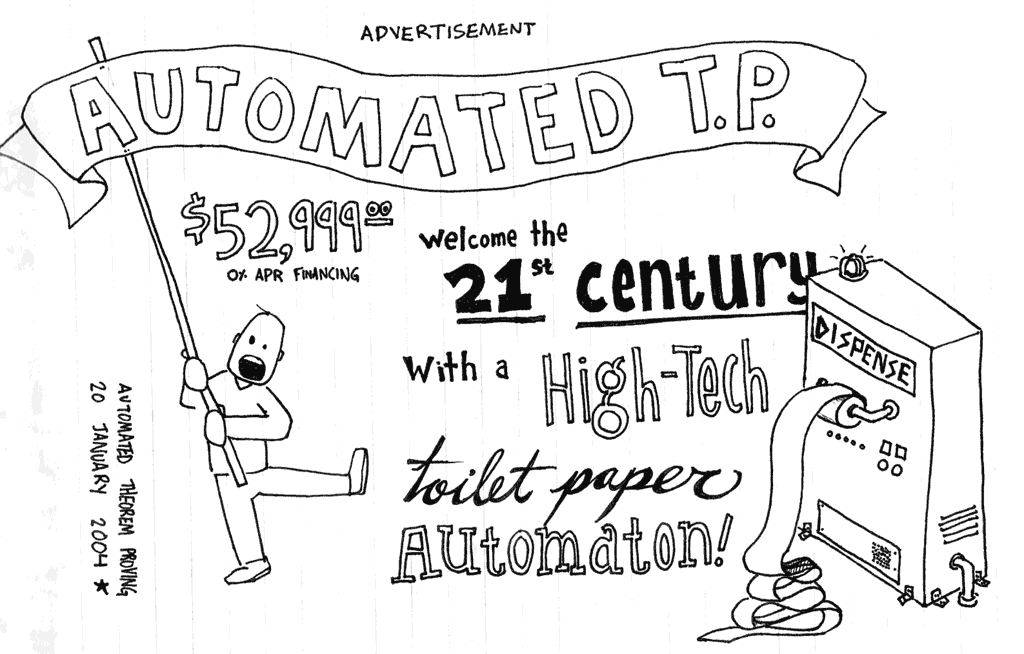 ADVERTISEMENT
AUTOMATED T.P.
$52,999.00
0% APR FINANCING
Welcome the
21st century
With a High-Tech
toilet paper
Automaton!
DISPENSE
AUTOMATED THEOREM PROVING
20 JANUARY 2004 ★